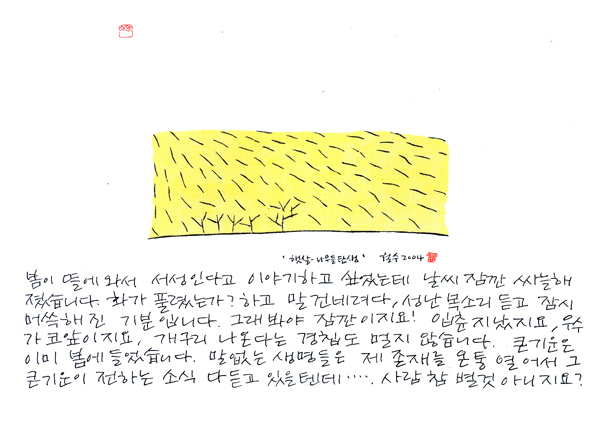 '햇살-나무들 탄생' 철수 2004
봄이 뜰에 와서 서성인다고 이야기하고 싶었는데 날씨 잠깐 싸늘해
졌습니다. 화가 풀렸는가? 하고 말 건네려다, 성난 목소리 듣고 잠시
머쓱해진 기분입니다. 그래봐야 잠깐이지요! 입춘 지났지요, 우수
가 코앞이지요, 개구리 나온다는 경칩도 멀지 않습니다. 큰기운은
이미 봄에 들었습니다. 말없는 생명들은 제 존재를 온통 열어서 그
큰기운이 전하는 소식 다 듣고 있을텐데····. 사람 참 별것 아니지요?